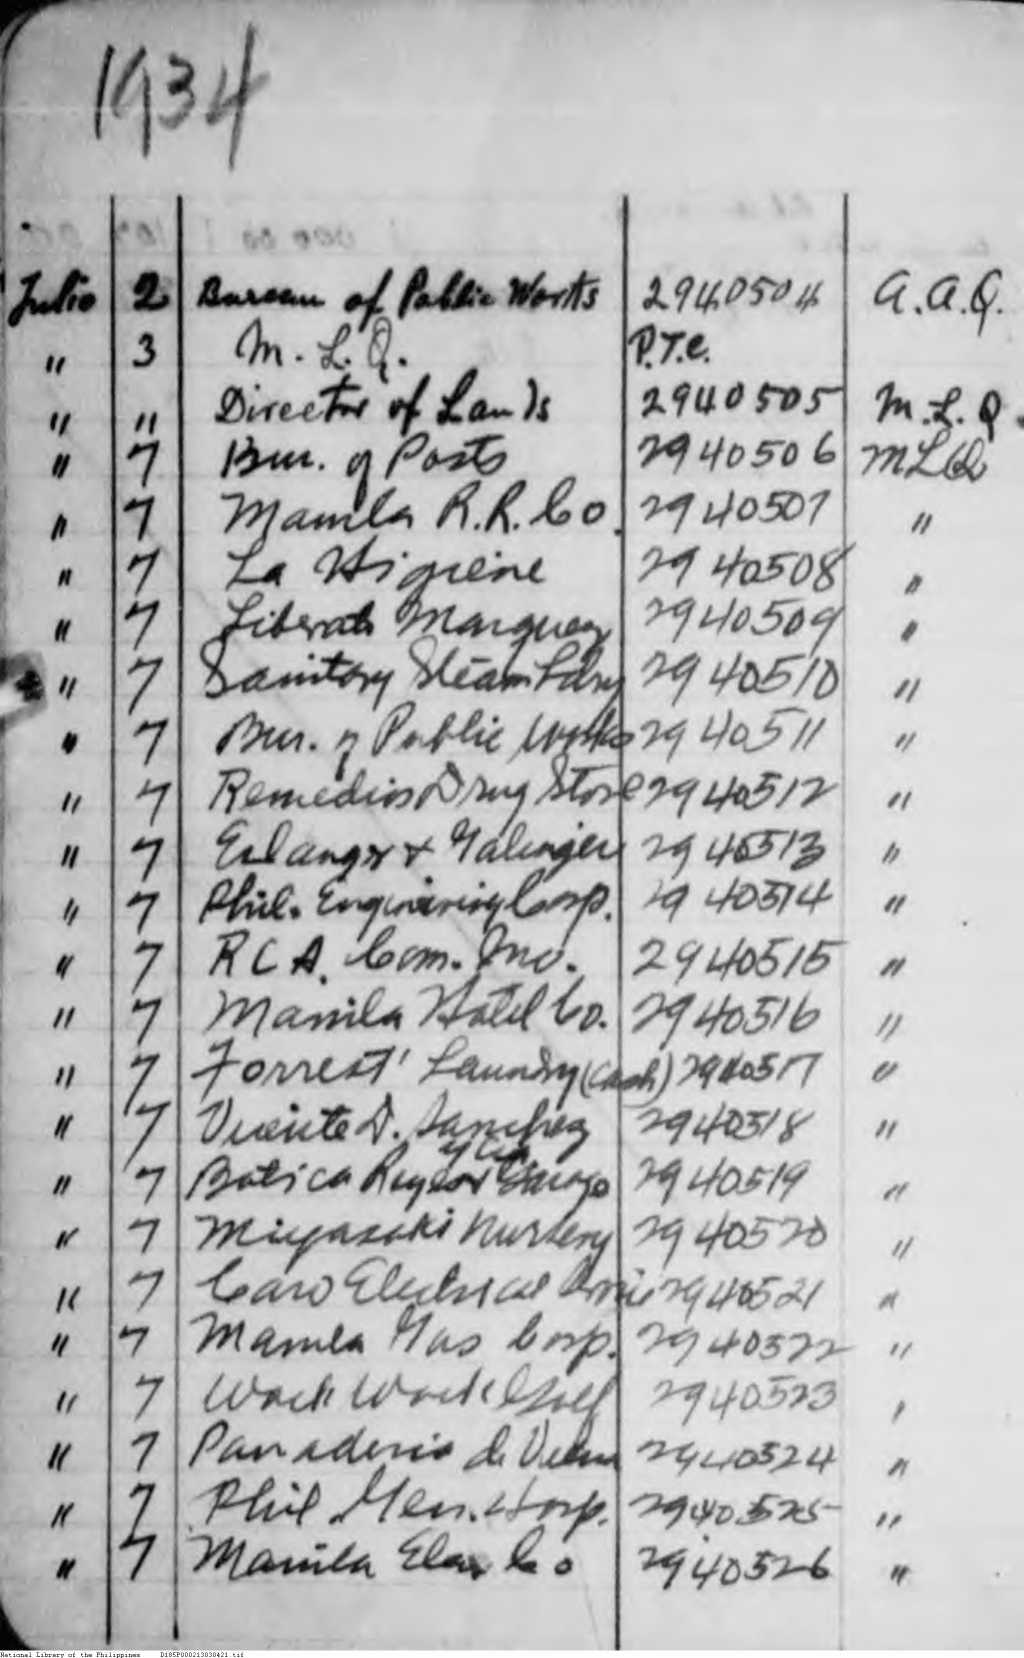 1934
Julio 2 Bureau of Public Works 2940504 A.A.Q.
" 3 M. L. Q. P.T.C.
" " Director of Lands 2940505 M.L.Q.
" 7 Bur. of Posts 2940506 MLQ
" 7 Manila R.R. Co. 2940507 "
" 7 La Higiene 2940508 "
" 7 Liberato Marquez 2940509 "
" 7 Sanitary Steam Ldry 2940510 "
" 7 Bur. of Public Works 2940511 "
" 7 Remedios Drug Store 2940512 "
" 7 Erlanger & Galinger 2940513 "
" 7 Phil. Engineering Corp. 2940514 "
" 7 RCA. Com. Inc. 2940515 "
" 7 Manila Hotel Co. 2940516 "
" 7 Forrest' Laundry (Cash) 2940517 "
" 7 Vicente D. Sanchez 2940518 "
y Cia
" 7 Botica 2940519 "
" 7 Miyasaki Nursery 2940520 "
" 7 Caro Electrical 2940521 "
" 7 Manila Gas Corp. 2940522 "
" 7 Wack Wack Golf 2940523 "
" 7 Panaderia de 2940524 "
" 7 Phil Gen. Hosp. 2940525 "
" 7 Manila Elec Co 2940526 "
National Library of the Philippines D185P000213030421.tif